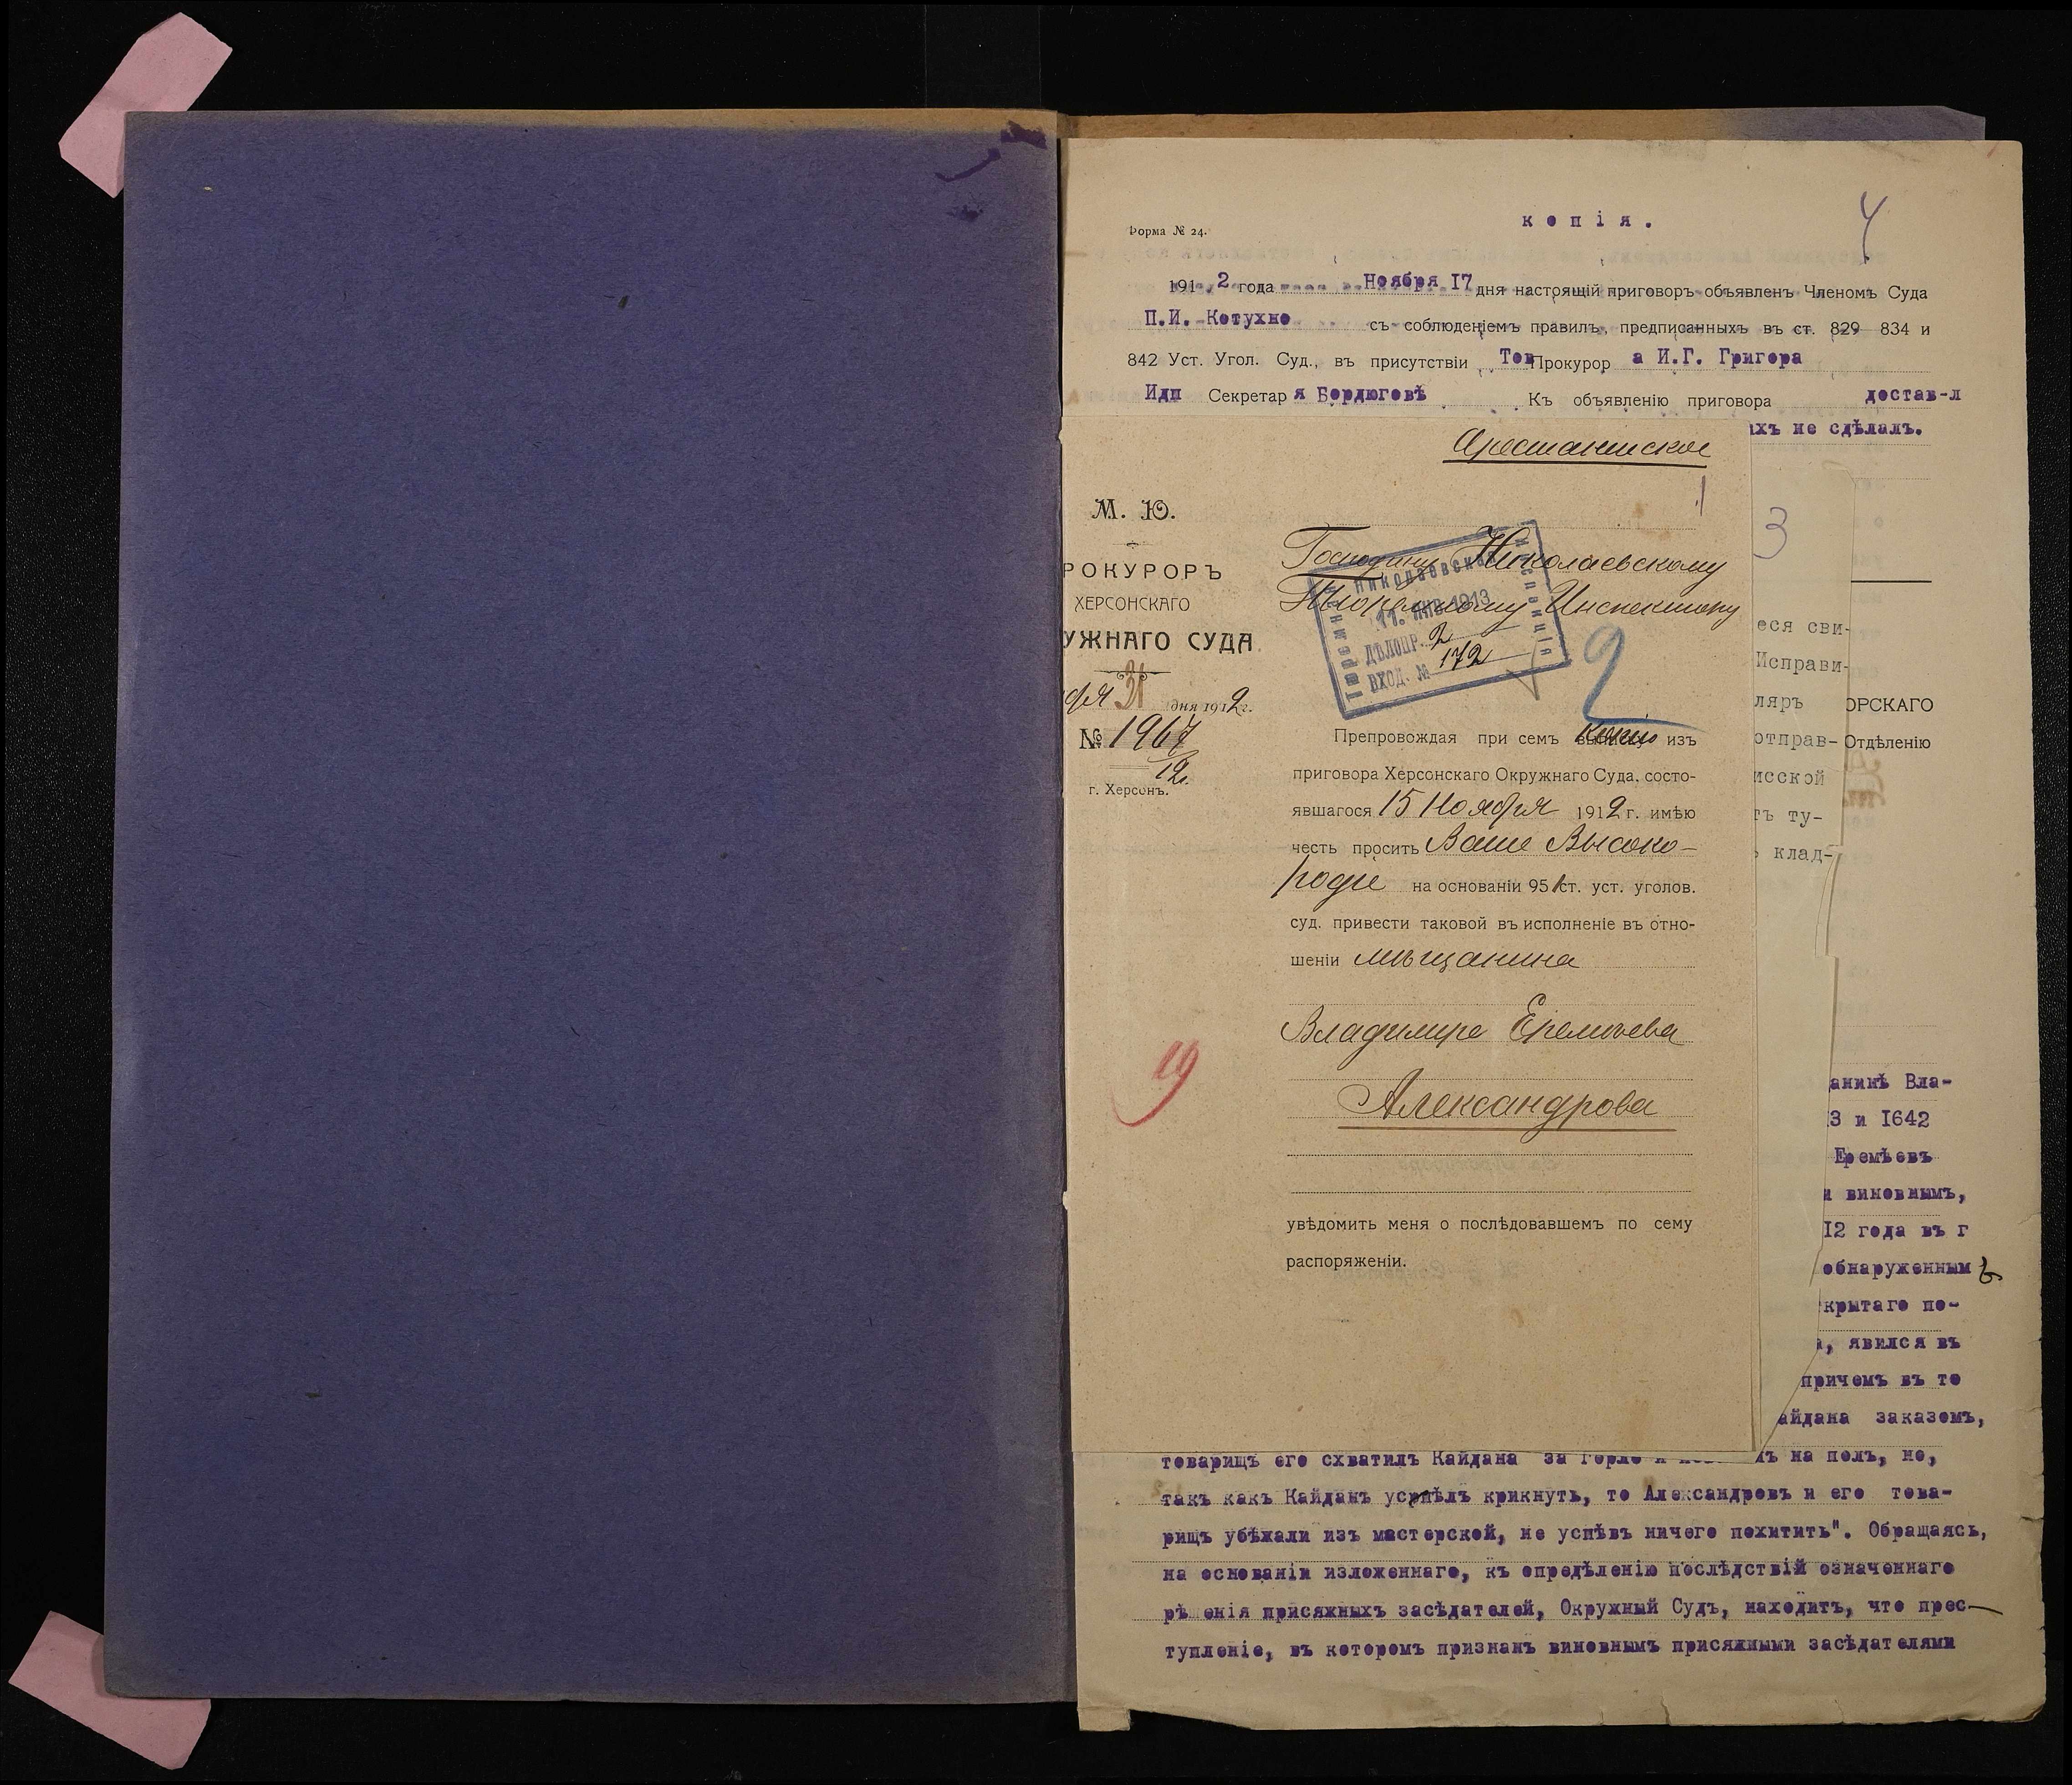 копія.
Форма № 24.
4
1912 года Ноября 17 дня настоящій приговоръ объявленъ Членомъ Суда
П.И. Котухно съ соблюденіемъ правилъ, предписанныхъ въ ст. 829 834 и
842 Уст. Угол. Суд., въ присутствіи Тов Прокурора И.Г. Григора
Идп Секретаря Бордюговѣ Къ объявленію приговора достав-л
ахъ не сдѣлалъ.
Арестантское
1
М. Ю.
РОКУРОРЪ
ХЕРСОНСКАГО
УЖНАГО СУДА.
бря 31 дня 1912 г.
№ 1967
12.
г. Херсонъ.
Господину Николаевскому
Тюремному Инспектору
Николаевская
Тюремная
Инспекція
11. ЯНВ 1913
ДѢЛОПР. 2
ВХОД. № 172
2
Препровождая при семъ копію изъ
приговора Херсонскаго Окружнаго Суда, состо-
явшагося 15 Ноября 1912 г. имѣю
честь просить Ваше Высоко-
родіе на основаніи 951 ст. уст. уголов.
суд. привести таковой въ исполненіе въ отно-
шеніи мѣщанина
Владимира Еремѣева
Александрова
19
увѣдомить меня о послѣдовавшемъ по сему
распоряженіи.
3
еся сви-
Исправи-
ляръ
отправ-
исской
тъ ту-
клад-
ОРСКАГО
Отдѣленію
анинѣ Вла-
13 и 1642
Еремѣевъ
и виновнымъ,
12 года въ г
обнаруженнымъ
крытаго по-
а, явился въ
причемъ въ то
айдана заказомъ,
товарищъ его схватилъ Кайдана за горло и лъ на полъ, но,
такъ какъ Кайданъ успѣлъ крикнуть, то Александровъ и его това-
рищъ убѣжали изъ мастерской, не успѣвъ ничего похитить". Обращаясь,
на основаніи изложеннаго, къ опредѣленію послѣдствій означеннаго
рѣшенія присяжныхъ засѣдателей, Окружный Судъ, находитъ, что прес-
тупленіе, въ которомъ признанъ виновнымъ присяжными засѣдателями